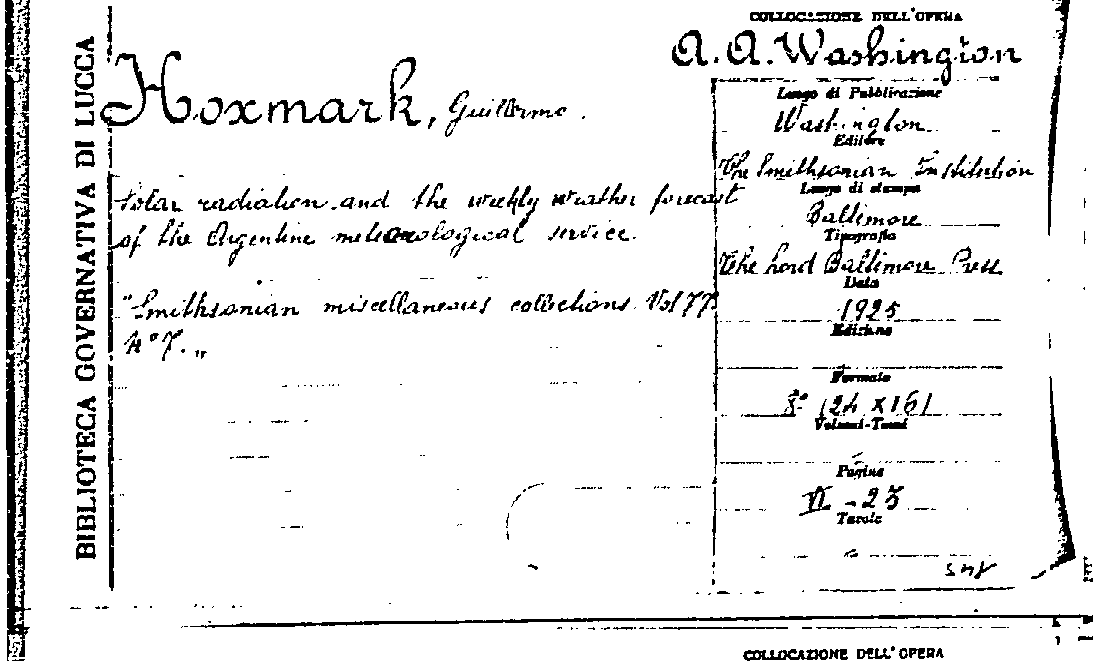 BIBLIOTECA GOVERNATIVA DI LUCCA
Hoxmark, Guillermo.
Solar radiation and the weekly weather forecast
of the Argentine meteorological service.
"Smithsonian miscellaneous collections Vol 77.
N° 7."
COLLOCAZIONE DELL'OPERA
A. A. Washington
Luogo di Pubblicazione
Washington
Editore
The Smithsonian Institution
Luogo di stampa
Baltimore
Tipografia
The Lord Baltimore Press
Data
1925
Edizione
Formato
8° (24 x 16)
Volumi-Tomi
Pagine
VI - 23
Tavole
COLLOCAZIONE DELL'OPERA